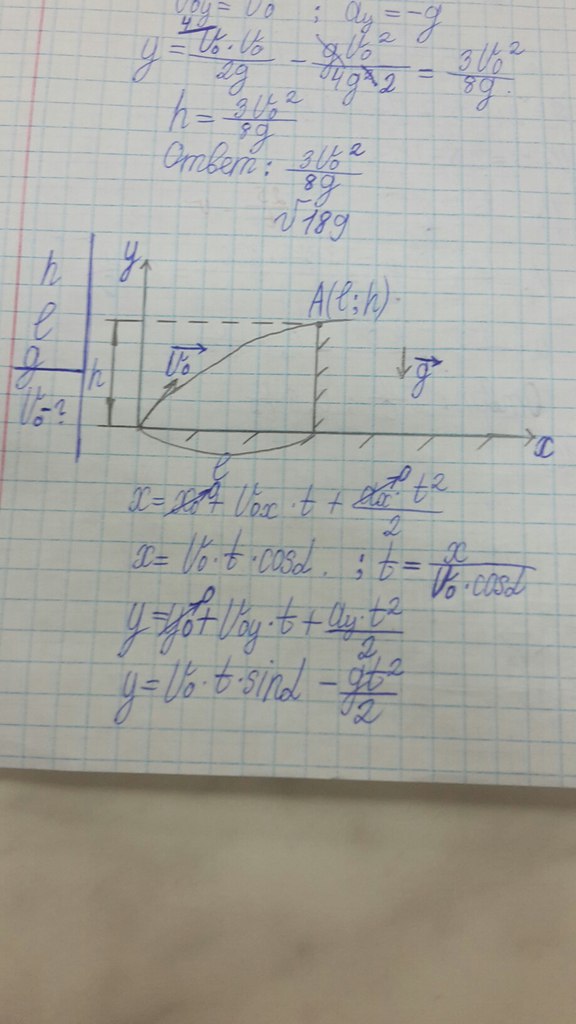 v₀y = v₀ ; ay = -g
y = v₀·v₀/2g - gv₀²/4g²·2 = 3v₀²/8g.
h = 3v₀²/8g
Ответ: 3v₀²/8g
√18g
h
l
g
v₀-?
y
h
v₀
A(l; h)
g
l
x
x = x₀ + v₀x·t + ax·t²/2
0
0
x = v₀·t·cosα. ; t = x/v₀·cosα
y = y₀ + v₀y·t + ay·t²/2
0
y = v₀·t·sinα - gt²/2